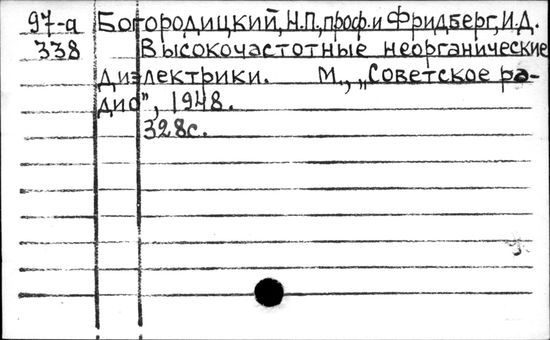 97-а Богородицкий, Н.П., проф. и Фридберг, И.Д.
338 Высокочастотные неорганические
диэлектрики. М., „Советское ра-
дио", 1948.
328с.